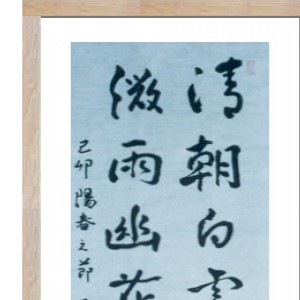 清朝白雲
微雨幽花
己卯陽春之節